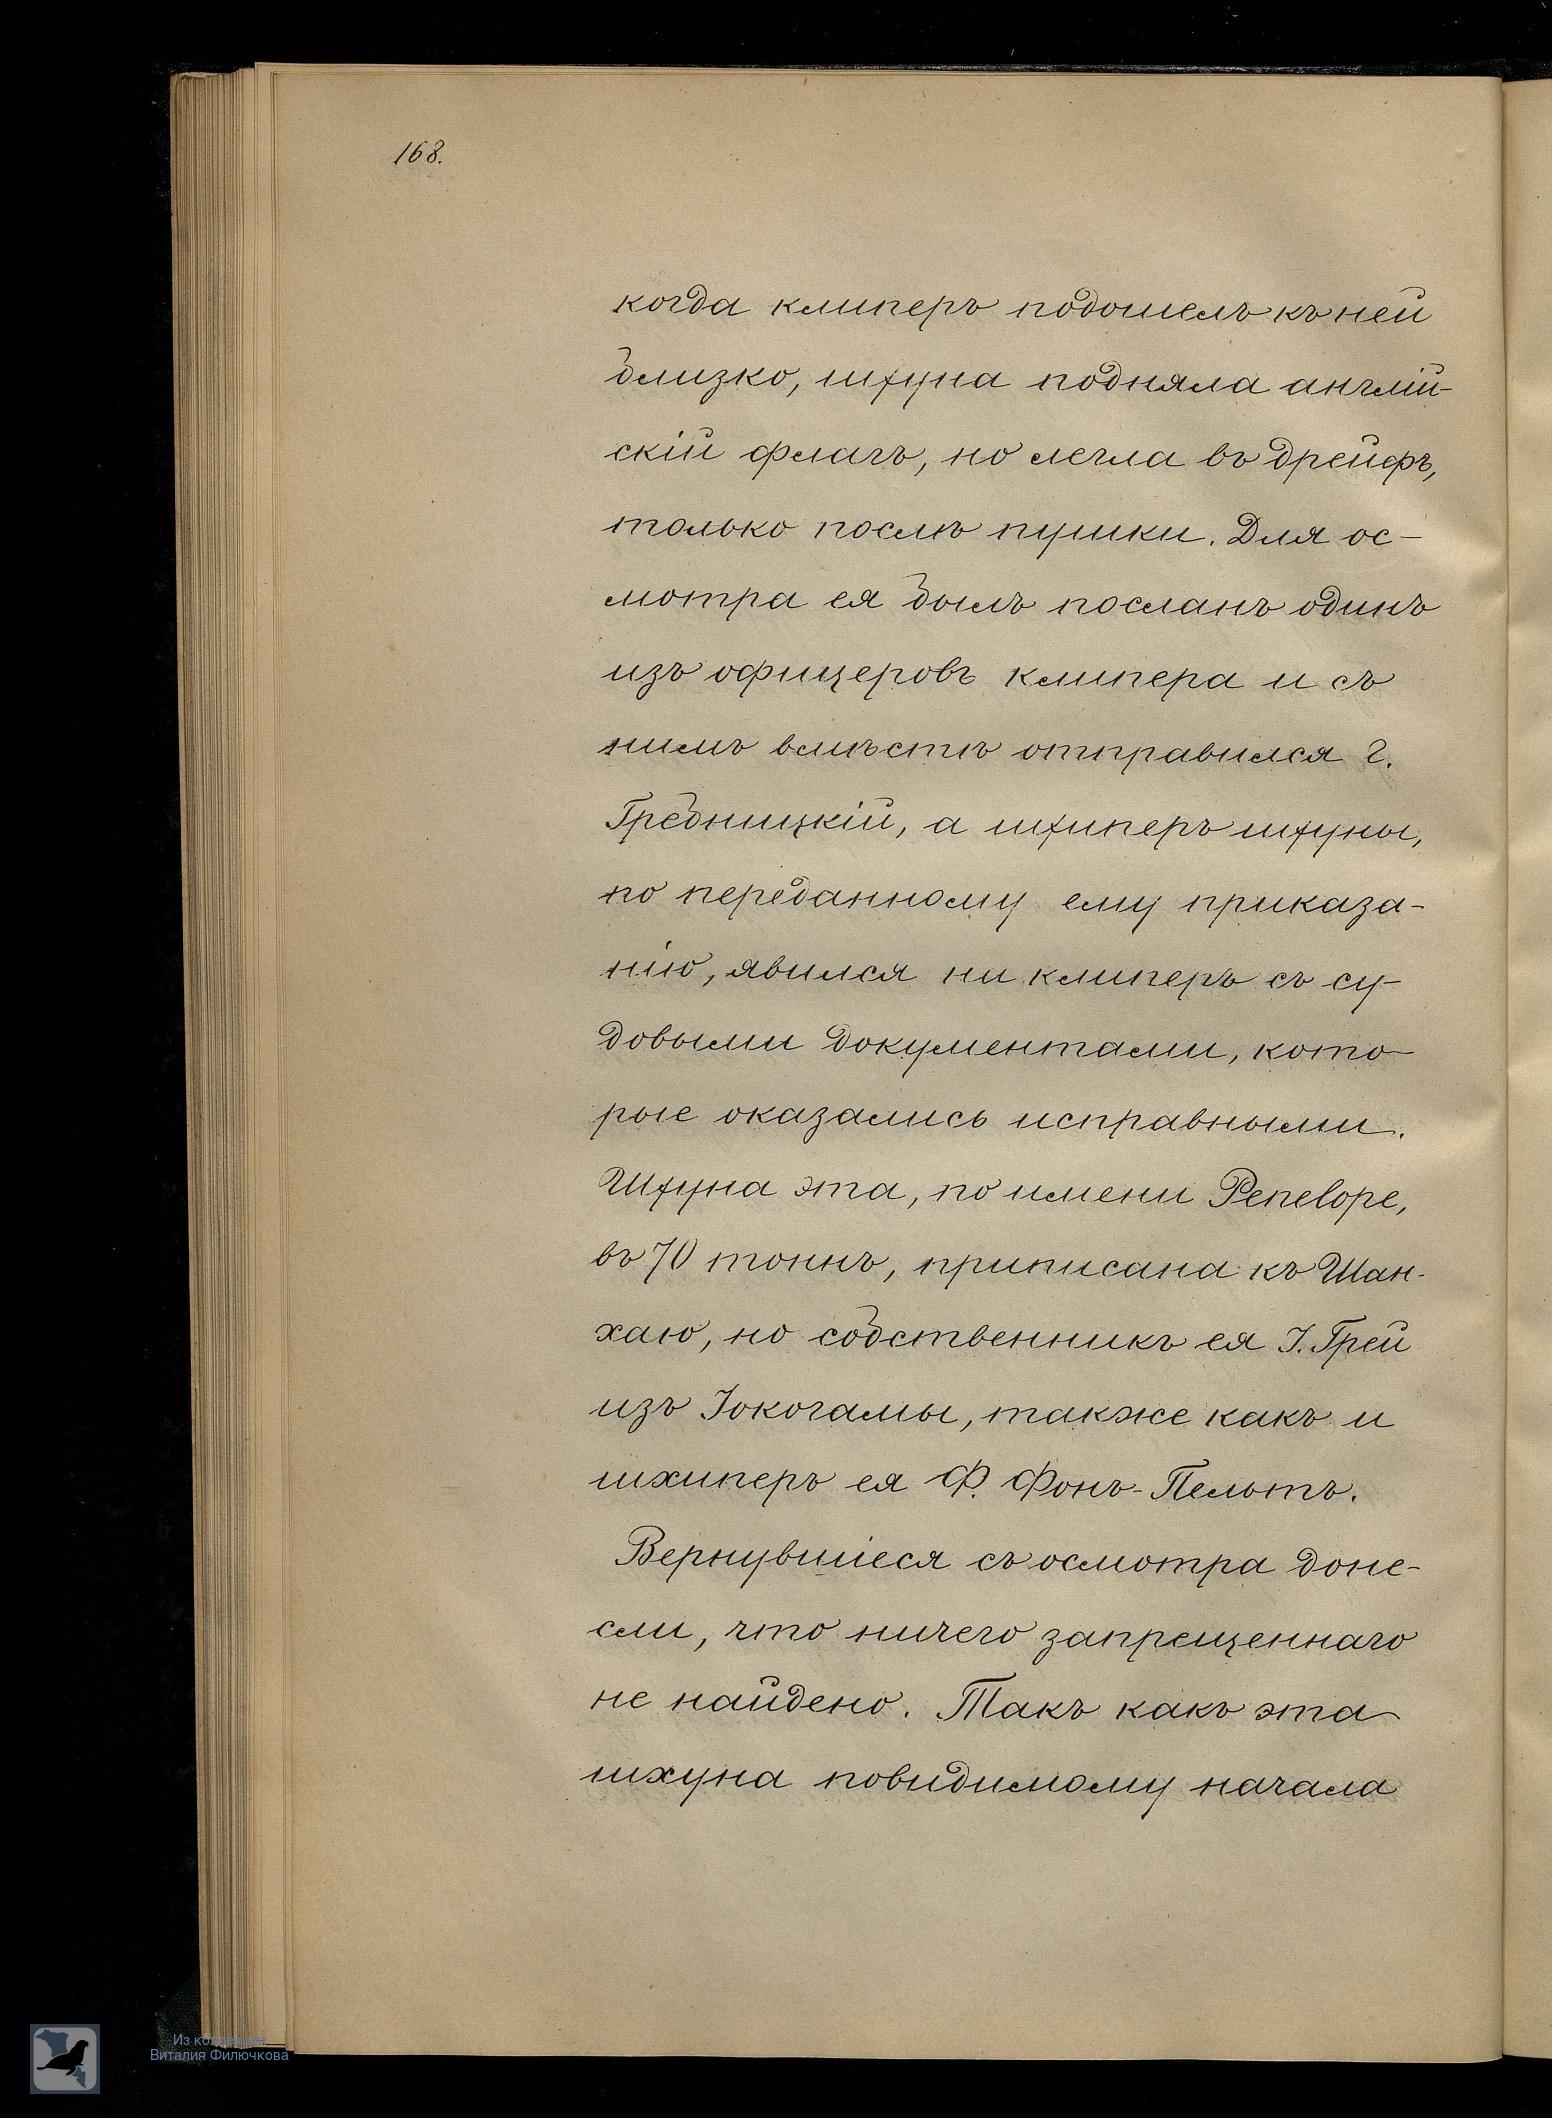 168.
когда клиперъ подошелъ къ ней
близко, шхуна подняла англій-
скій флагъ, но легла въ дрейфъ,
только послѣ пушки. Для ос-
мотра ея былъ посланъ одинъ
изъ офицеровъ клипера и съ
нимъ вмѣстѣ отправился г.
Гребницкій, а шхиперъ шхуны,
по переданному ему приказа-
нію, явился на клиперъ съ су-
довыми документами, кото-
рые оказались исправными.
Шхуна эта, по имени Penelope,
въ 70 тоннъ, приписана къ Шан-
хаю, но собственникъ ея I. Грей
изъ Іокогамы, также какъ и
шхиперъ ея Ф. Фонъ-Пельтъ.
Вернувшіеся съ осмотра доне-
сли, что ничего запрещеннаго
не найдено. Такъ какъ эта
шхуна повидимому начала
Из коллекции
Виталия Филючкова